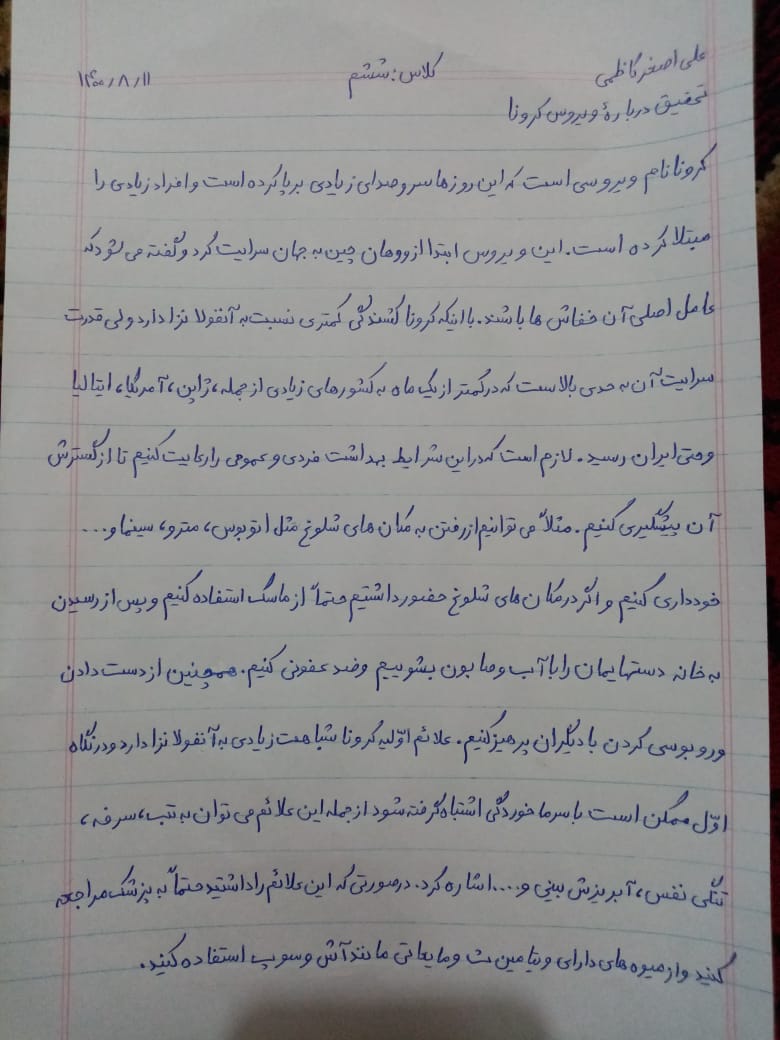 علی اصغر کاظمی کلاس: ششم ۱۴۰۰/۸/۱۱
تحقیق دربارهٔ ویروس کرونا
کرونا نام ویروسی است که این روزها سر و صدای زیادی برپا کرده است و افراد زیادی را
مبتلا کرده است. این ویروس ابتدا از ووهان چین به جهان سرایت کرد و گفته می شود که
عامل اصلی آن خفاش ها باشند. با اینکه کرونا کشندگی کمتری نسبت به آنفولانزا دارد ولی قدرت
سرایت آن به حدی بالاست که در کمتر از یک ماه به کشورهای زیادی از جمله، ژاپن، آمریکا، ایتالیا
و حتی ایران رسید. لازم است که در این شرایط بهداشت فردی و عمومی را رعایت کنیم تا از گسترش
آن پیشگیری کنیم. مثلاً می توانیم از رفتن به مکان های شلوغ مثل اتوبوس، مترو، سینما و...
خودداری کنیم و اگر در مکان های شلوغ حضور داشتیم حتماً از ماسک استفاده کنیم و پس از رسیدن
به خانه دستهایمان را با آب و صابون بشوییم و ضد عفونی کنیم. همچنین از دست دادن
و روبوسی کردن با دیگران پرهیز کنیم. علائم اوّلیه کرونا شباهت زیادی به آنفولانزا دارد و در نگاه
اوّل ممکن است با سرماخوردگی اشتباه گرفته شود از جمله این علائم می توان به تب، سرفه،
تنگی نفس، آبریزش بینی و.... اشاره کرد. در صورتی که این علائم را داشتید حتماً به پزشک مراجعه
کنید و از میوه های دارای ویتامین ث و مایعاتی مانند آش و سوپ استفاده کنید.